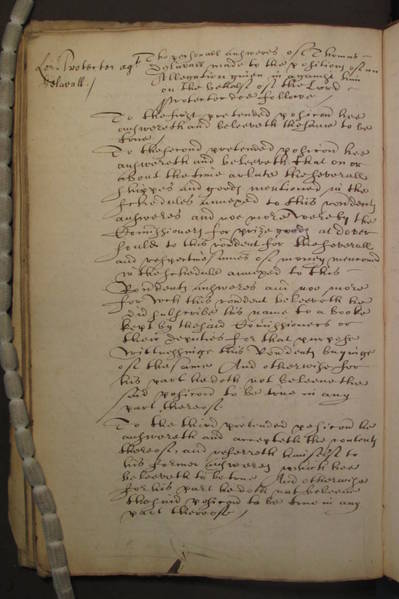 Lord Protector agt
Delavall./
The personall answeres of Thomas
Delavall made to the positions of an
Allegation given in against him
on the behalfe of the Lord
Protector doe followe
To the first pretended position hee
answereth and beleeveth the same to be
true./
To the second pretended position hee
answereth and beleeveth that on or
about the time arlate the severall
shippes and goods mentioned in the
schedules annexed to this rendents
answeres and noe more were by the
Commissioners for prize goods at dover
sould to this rendent for the severall
and respective summes of money mencioned
in the schedule annexed to this
Rendents answeres and noe more
for wch this rendent beleeveth he
did subscribe his name to a booke
kept by the said Commissioners or
their deputies for that purpose
Wittnessinge this Rendents buyinge
of the same And otherwise for
his part he doth not beleeve the
said position to be true in any
part thereof.
To the third pretended position he
answereth and accepteth the contents
thereof, and referreth himselfe to
his former answeres which hee
beleeveth to be true And otherwise
for his part he doth not beleeve
the said position to be true in any
part thereof./